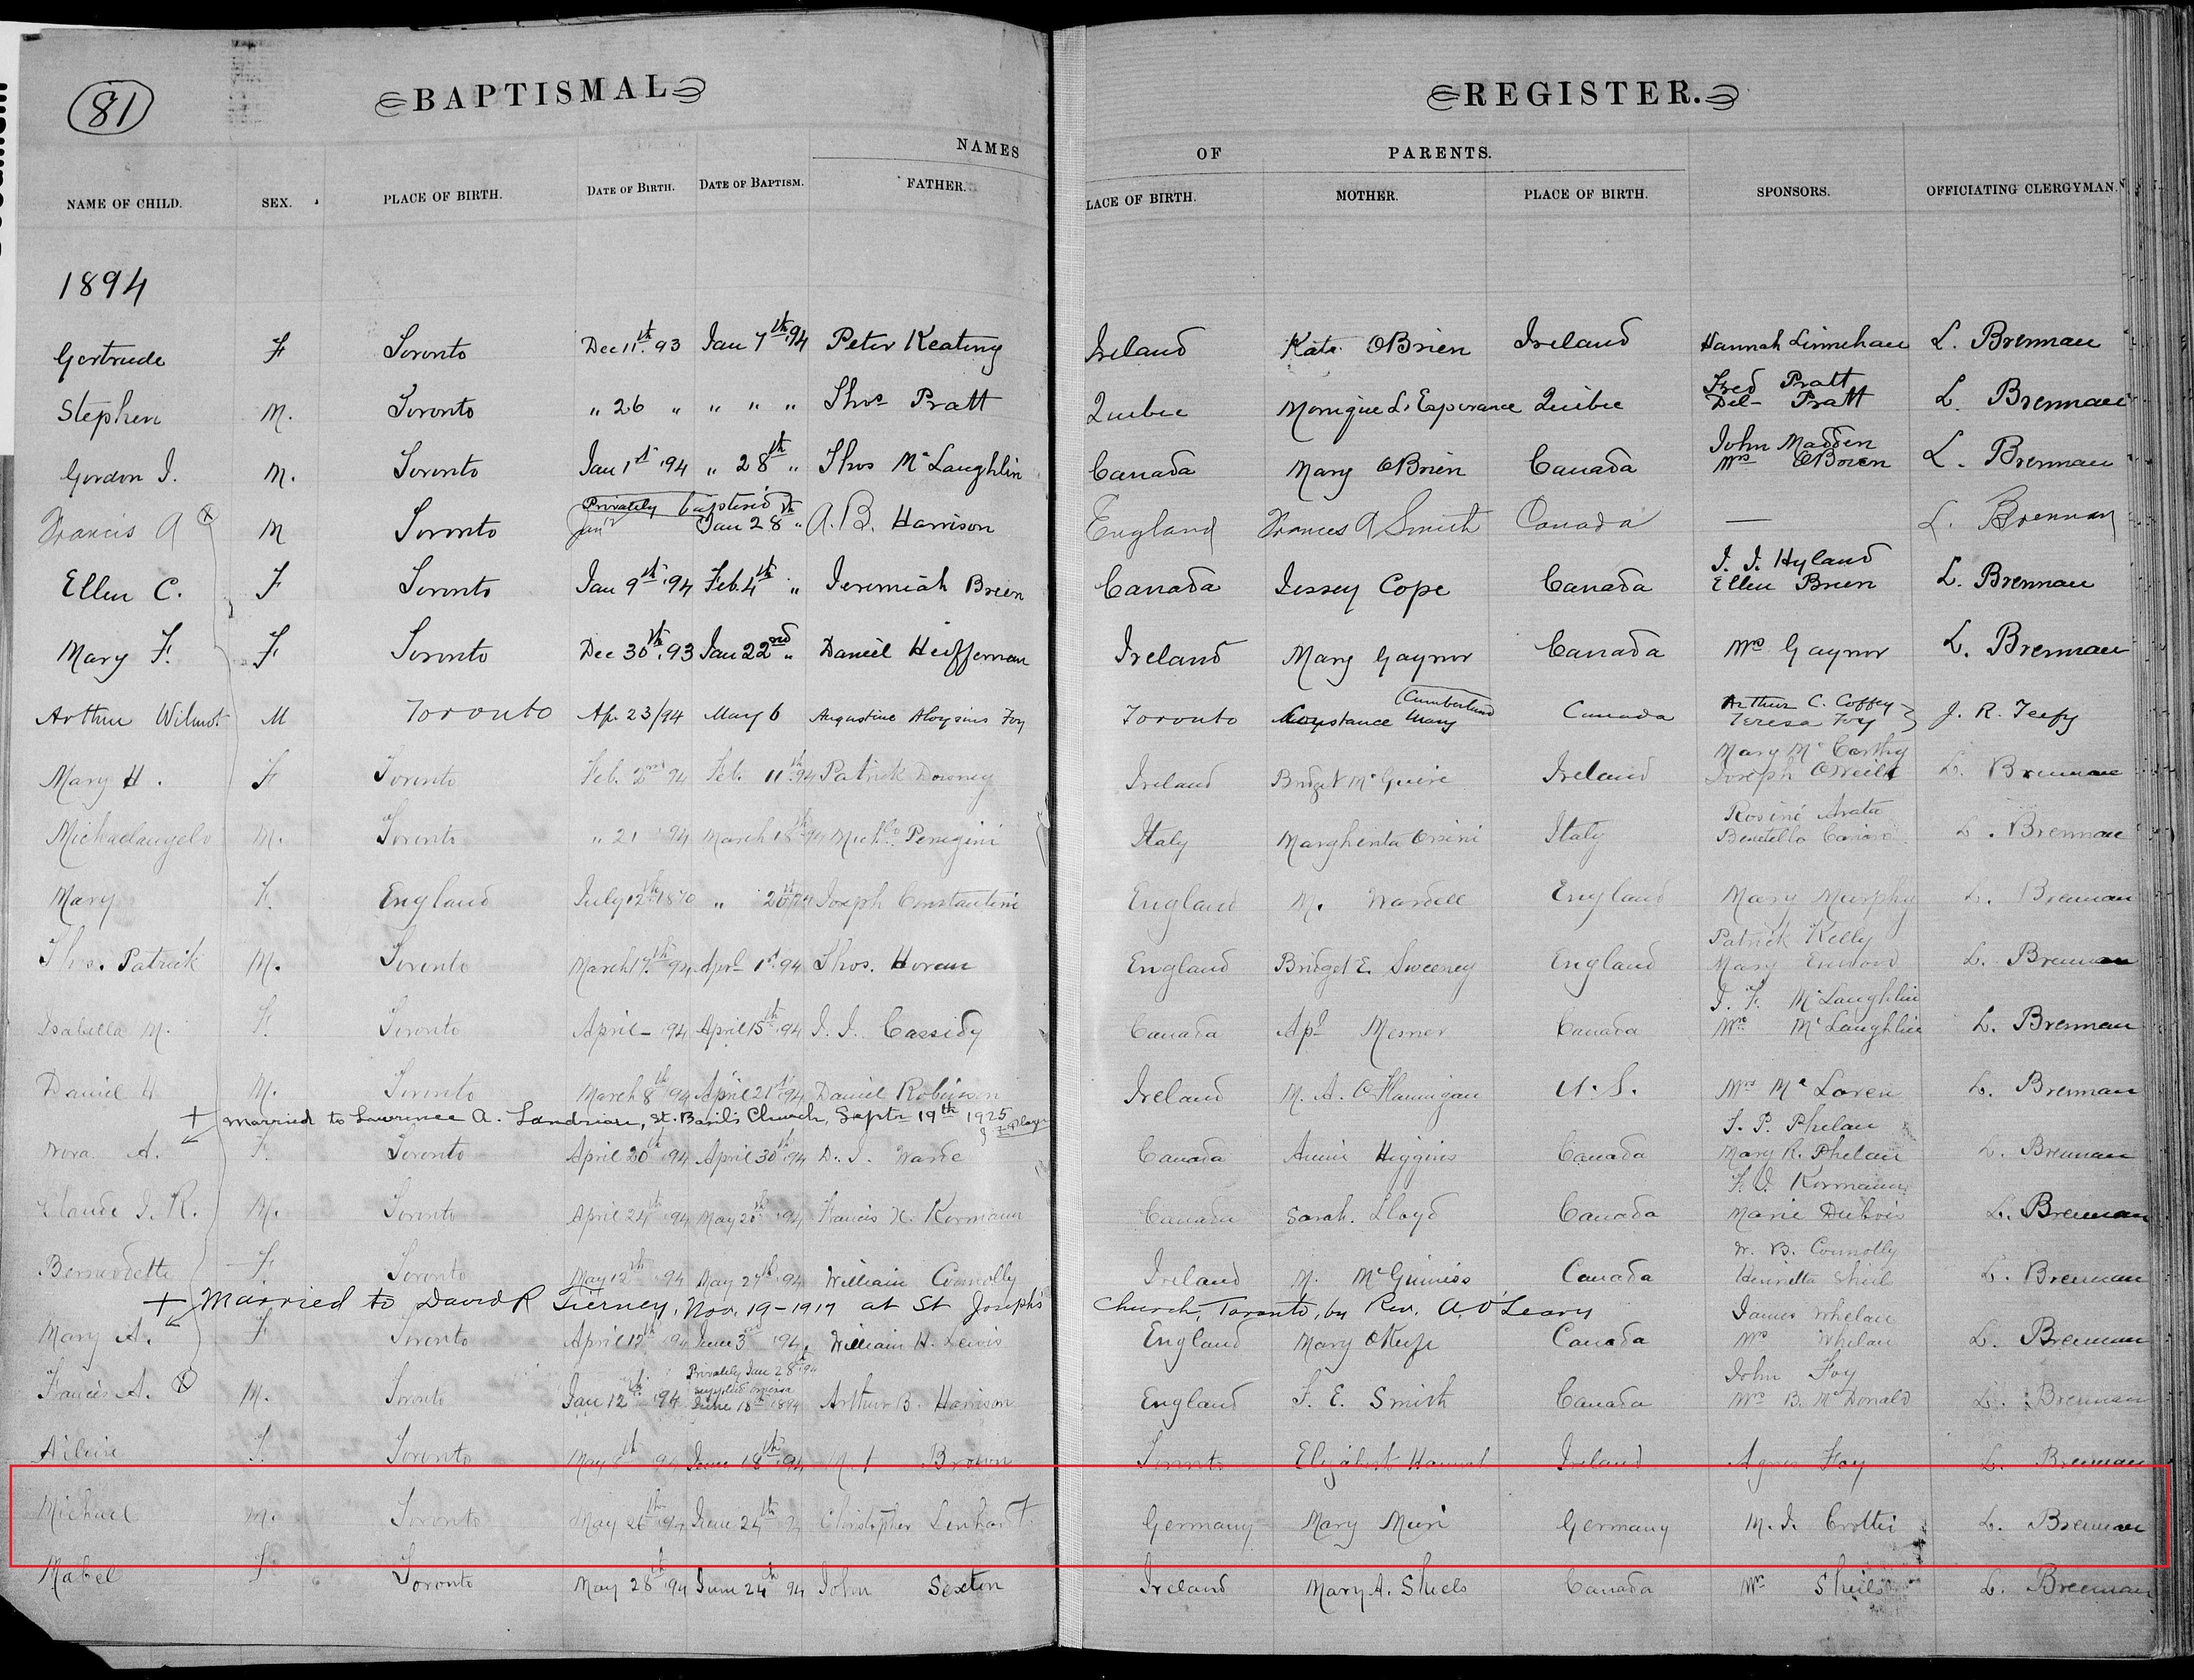 81
BAPTISMAL REGISTER.
NAMES OF PARENTS.
NAME OF CHILD. SEX. PLACE OF BIRTH. DATE OF BIRTH. DATE OF BAPTISM. FATHER. LACE OF BIRTH. MOTHER. PLACE OF BIRTH. SPONSORS. OFFICIATING CLERGYMAN.
1894
Gertrude F Toronto Dec 11th. 93 Jan 7th. 94 Peter Keating Ireland Kate OBrien Ireland Hannah Linnehan L. Brennan
Fred Pratt
Stephen M. Toronto " 26 " " " " Thos Pratt Quebec Monique L'Esperance Quebec Del- Pratt L. Brennan
John Madden
Gordon J. M. Toronto Jan 1st '94 " 28th " Thos McLaughlin Canada Mary OBrien Canada Mrs OBrien L. Brennan
Privately baptised
Francis A M Toronto Jan 12 Jan 28th " A. B. Harrison England Frances A Smith Canada — L. Brennan
J. J. Hyland
Ellen C. F Toronto Jan 9th '94 Feb. 4th " Jeremiah Breen Canada Jessey Cope Canada Ellen Brien L. Brennan
Mary F. F Toronto Dec 30th. 93 Jan 22nd " Daniel Heffernan Ireland Mary Gaynor Canada Mrs Gaynor L. Brennan
Cumberland Arthur C. Coffey
Arthur Wilmot M Toronto Ap. 23/94 May 6 Augustine Aloysius Foy Toronto Constance Mary Canada Teresa Foy J. R. Teefy
Mary McCarthy
Mary H. F Toronto Feb. 2nd 94 Feb. 11th 94 Patrick Downey Ireland Bridget McGuire Ireland Joseph ONeill L. Brennan
Michaelangelo M. Toronto " 21 '94 March 18th 94 Perigini Italy Margherita Orsini Italy L. Brennan
Mary F. England July 12th 1870 " Joseph Constantine England M. Wardell England Mary Murphy L. Brennan
Patrick Kelly
Thos. Patrick M. Toronto March 17th 94 Aprl 1st 94 Thos. Horan England Bridget E. Sweeney England Mary L. Brennan
J. F. McLaughlin
Isabella M. F. Toronto April – 94 April 15th 94 J. J. Cassidy Canada Canada Mrs McLaughlin L. Brennan
Daniel M. Toronto March 8th 94 April 21st 94 Daniel Robinson Ireland M. A. OFlannigan U. S. Mrs McLoren L. Brennan
+ Married to Lawrence A. Landriau, St. Basil's Church, Septr 19th 1925
T. P. Phelan
Nora A. F. Toronto April 20th 94 April 30th 94 D. J. Wade Canada Annie Higgins Canada Mary R. Phelan L. Brennan
F. J. Kormann
Claude J. R. M. Toronto April 24th 94 May 20th 94 Francis X. Kormann Canada Sarah. Lloyd Canada Marie Dubois L. Brennan
W. B. Connolly
Bernadette F Toronto May 12th 94 May 27th 94 William Connolly Ireland M. McGuiniss Canada Henrietta Shiel L. Brennan
+ Married to David R Tierney, Nov. 19 – 1917 at St Joseph's Church, Toronto, by Rev. A. O'Leary
James Whelan
Mary A. F Toronto April 12th 94 June 3rd 94 William H. Lewis England Mary OKeefe Canada Mrs Whelan L. Brennan
Privately Jan 28th 94 John Foy
Francis A. M. Toronto Jan 12th 94 June 18th 1894 Arthur B. Harrison England F. E. Smith Canada Mrs B. McDonald L. Brennan
F. Toronto May June 18th 94 Brown Toronto Elizabeth Ireland Agnes Foy L. Brennan
Michael M. Toronto May 26th 94 June 24th 94 Christopher Lenhart Germany Mary Germany M. J. Crottie L. Brennan
Mabel F. Toronto May 28th 94 June 24th 94 John Sexton Ireland Mary A. Shiels Canada Mrs Sheils L. Brennan